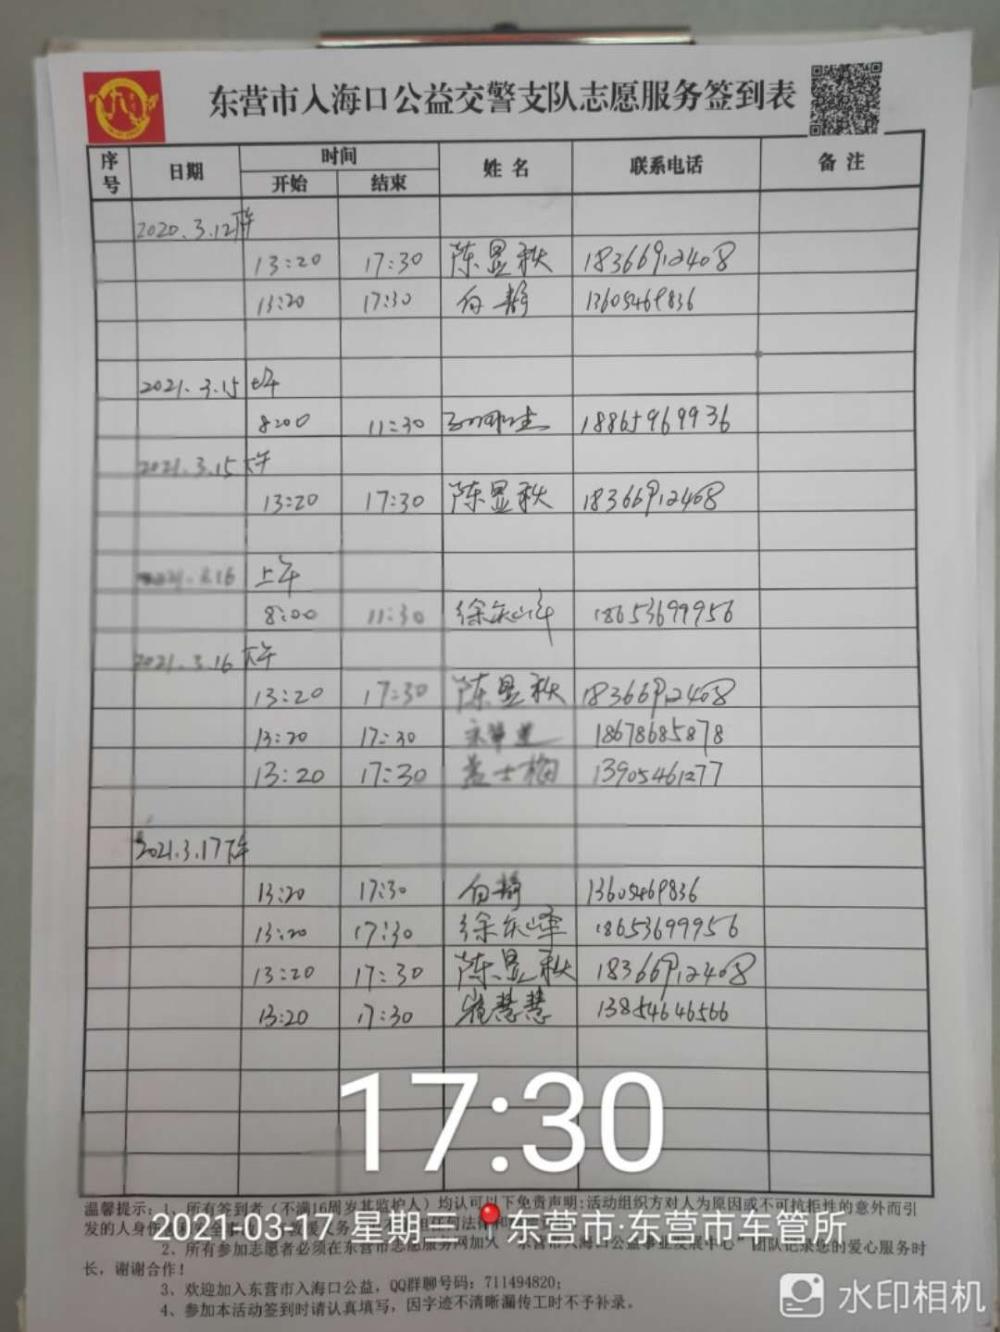 东营市入海口公益交警支队志愿服务签到表
序号 日期 时间 姓名 联系电话 备注
开始 结束
2020.3.12下午
13:20 17:30 陈显秋 18366912408
13:20 17:30 白静 13605469836
2021.3.15 上午
8:00 11:30 18865969936
2021.3.15 下午
13:20 17:30 陈显秋 18366912408
2021.3.16 上午
8:00 11:30 徐庆峰 18653699956
2021.3.16 下午
13:20 17:30 陈显秋 18366912408
13:20 17:30 18678685878
13:20 17:30 盖士梅 13905461277
2021.3.17下午
13:20 17:30 白静 13605469836
13:20 17:30 徐庆峰 18653699956
13:20 17:30 陈显秋 18366912408
13:20 17:30 崔慧慧 13854646566
17:30
温馨提示:1、所有签到者(不满16周岁其监护人)均认可以下免责声明:活动组织方对人为原因或不可抗拒性的意外而引
发的人身
2021-03-17 星期三 东营市·东营市车管所
2、所有参加志愿者必须在东营市志愿服务网加入“东营市入海口公益事业发展中心”团队记录您的爱心服务时
长,谢谢合作!
3、欢迎加入东营市入海口公益,QQ群聊号码:711494820;
4、参加本活动签到时请认真填写,因字迹不清晰漏传工时不予补录。
水印相机